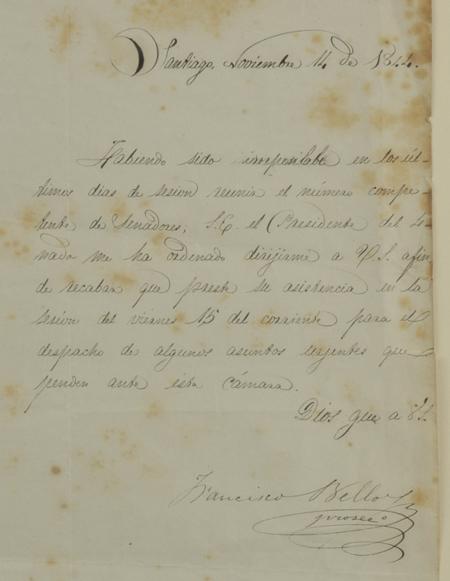 Santiago, Noviembre 14 de 1844.
Habiendo sido imposible en los úl-
timos dias de sesion reunir el número compe-
tente de Senadores, S.E. el Presidente del Se-
nado me ha ordenado dirijirme a V.S. afin
de recabar que preste su asistencia en la
sesion del viernes 15 del corriente para el
despacho de algunos asuntos urjentes que
penden ante esta cámara.
Dios gue a V.S.
Francisco Bello
prosec